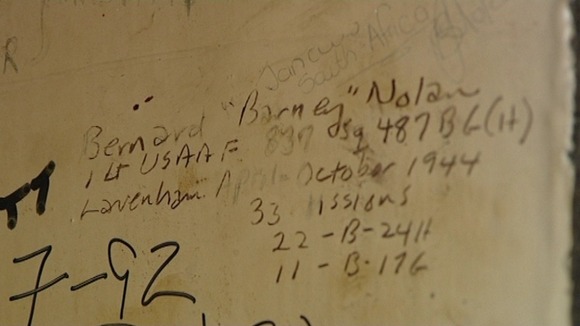 R
South Africa
Bernard "Barney" Nolan
1 Lt USAAF 837 Sq 487 BG(H)
Lavenham April-October 1944
33 Missions
22-B-24H
11-B-17G
7-92